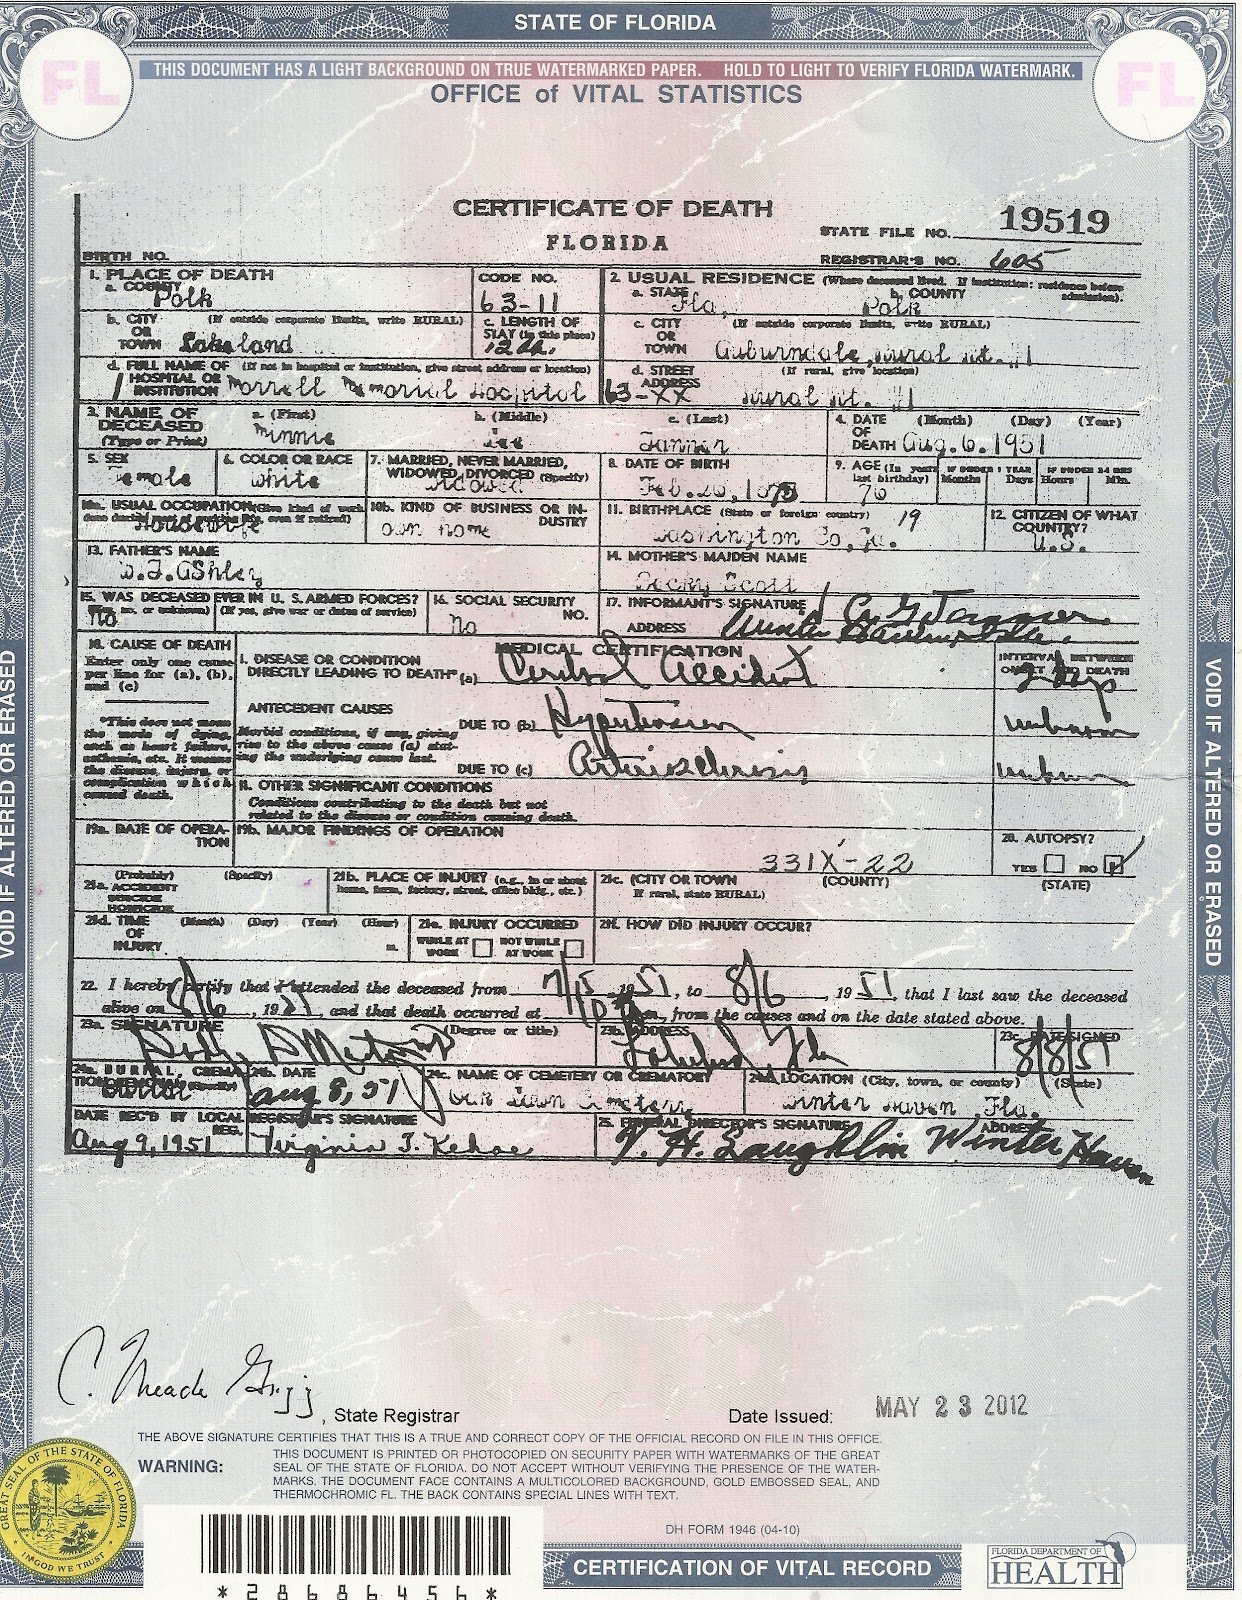 STATE OF FLORIDA
FL
FL
THIS DOCUMENT HAS A LIGHT BACKGROUND ON TRUE WATERMARKED PAPER. HOLD TO LIGHT TO VERIFY FLORIDA WATERMARK.
OFFICE of VITAL STATISTICS
CERTIFICATE OF DEATH
FLORIDA
STATE FILE NO. 19519
BIRTH NO.
REGISTRAR'S NO. 605
1. PLACE OF DEATH
a. COUNTY Polk
CODE NO. 63-11
2. USUAL RESIDENCE (Where deceased lived. If institution: residence before admission).
a. STATE Fla. b. COUNTY Polk
b. CITY OR TOWN (If outside corporate limits, write RURAL) Lakeland
c. LENGTH OF STAY (in this place) 12
c. CITY OR TOWN (If outside corporate limits, write RURAL) Auburndale, Rural Rt. #1
d. FULL NAME OF HOSPITAL OR INSTITUTION (If not in hospital or institution, give street address or location) Morrell Memorial Hospital
d. STREET ADDRESS (If rural, give location) 63-XX Rural Rt. #1
3. NAME OF DECEASED (Type or Print) a. (First) Minnie b. (Middle) Lee c. (Last) Tanner
4. DATE OF DEATH (Month) (Day) (Year) Aug. 6. 1951
5. SEX Female
6. COLOR OR RACE White
7. MARRIED, NEVER MARRIED, WIDOWED, DIVORCED (Specify) Widowed
8. DATE OF BIRTH Feb. 26,
9. AGE (In years last birthday) 76 IF UNDER 1 YEAR Months Days IF UNDER 24 HRS Hours Min.
10a. USUAL OCCUPATION (Give kind of work done during most of working life, even if retired) Housewife
10b. KIND OF BUSINESS OR INDUSTRY own home
11. BIRTHPLACE (State or foreign country) 19 Washington Co, Ga.
12. CITIZEN OF WHAT COUNTRY? U.S.
13. FATHER'S NAME Ashley
14. MOTHER'S MAIDEN NAME Becky Scott
15. WAS DECEASED EVER IN U. S. ARMED FORCES? (Yes, no, or unknown) (If yes, give war or dates of service) No
16. SOCIAL SECURITY NO. No
17. INFORMANT'S SIGNATURE C. G. Tanner
ADDRESS Winter Haven, Fla.
18. CAUSE OF DEATH
Enter only one cause per line for (a), (b), and (c)
MEDICAL CERTIFICATION
INTERVAL BETWEEN ONSET AND DEATH
I. DISEASE OR CONDITION DIRECTLY LEADING TO DEATH* (a) Cerebral Accident 2 days
*This does not mean the mode of dying, such as heart failure, asthenia, etc. It means the disease, injury, or complication which caused death.
ANTECEDENT CAUSES
Morbid conditions, if any, giving rise to the above cause (a) stating the underlying cause last.
DUE TO (b) Hypertension unknown
DUE TO (c) Arteriosclerosis unknown
II. OTHER SIGNIFICANT CONDITIONS
Conditions contributing to the death but not related to the disease or condition causing death.
19a. DATE OF OPERATION
19b. MAJOR FINDINGS OF OPERATION
331X-22
20. AUTOPSY?
YES NO
21a. ACCIDENT SUICIDE HOMICIDE (Probably) (Specify)
21b. PLACE OF INJURY (e.g., in or about home, farm, factory, street, office bldg., etc.)
21c. (CITY OR TOWN If rural, state RURAL) (COUNTY) (STATE)
21d. TIME OF INJURY (Month) (Day) (Year) (Hour) m.
21e. INJURY OCCURRED
WHILE AT WORK NOT WHILE AT WORK
21f. HOW DID INJURY OCCUR?
22. I hereby certify that I attended the deceased from 7/15, 1951, to 8/6, 1951, that I last saw the deceased
alive on 8/6, 1951, and that death occurred at m., from the causes and on the date stated above.
23a. SIGNATURE (Degree or title)
23b. ADDRESS Lakeland, Fla
23c. DATE SIGNED 8/8/51
24a. BURIAL, CREMATION, REMOVAL (Specify) Burial
24b. DATE Aug 8, 51
24c. NAME OF CEMETERY OR CREMATORY Oak Lawn Cemetery
24d. LOCATION (City, town, or county) (State) Winter Haven, Fla.
DATE REC'D BY LOCAL REG. Aug 9, 1951
REGISTRAR'S SIGNATURE Virginia T. Kehoe
25. FUNERAL DIRECTOR'S SIGNATURE ADDRESS V. H. Laughlin Winter Haven
VOID IF ALTERED OR ERASED
VOID IF ALTERED OR ERASED
C. Meade Grigg, State Registrar
Date Issued: MAY 23 2012
THE ABOVE SIGNATURE CERTIFIES THAT THIS IS A TRUE AND CORRECT COPY OF THE OFFICIAL RECORD ON FILE IN THIS OFFICE.
WARNING: THIS DOCUMENT IS PRINTED OR PHOTOCOPIED ON SECURITY PAPER WITH WATERMARKS OF THE GREAT
SEAL OF THE STATE OF FLORIDA. DO NOT ACCEPT WITHOUT VERIFYING THE PRESENCE OF THE WATER-
MARKS. THE DOCUMENT FACE CONTAINS A MULTICOLORED BACKGROUND, GOLD EMBOSSED SEAL, AND
THERMOCHROMIC FL. THE BACK CONTAINS SPECIAL LINES WITH TEXT.
GREAT SEAL OF THE STATE OF FLORIDA
IN GOD WE TRUST
DH FORM 1946 (04-10)
CERTIFICATION OF VITAL RECORD
FLORIDA DEPARTMENT OF
HEALTH
*28686456*